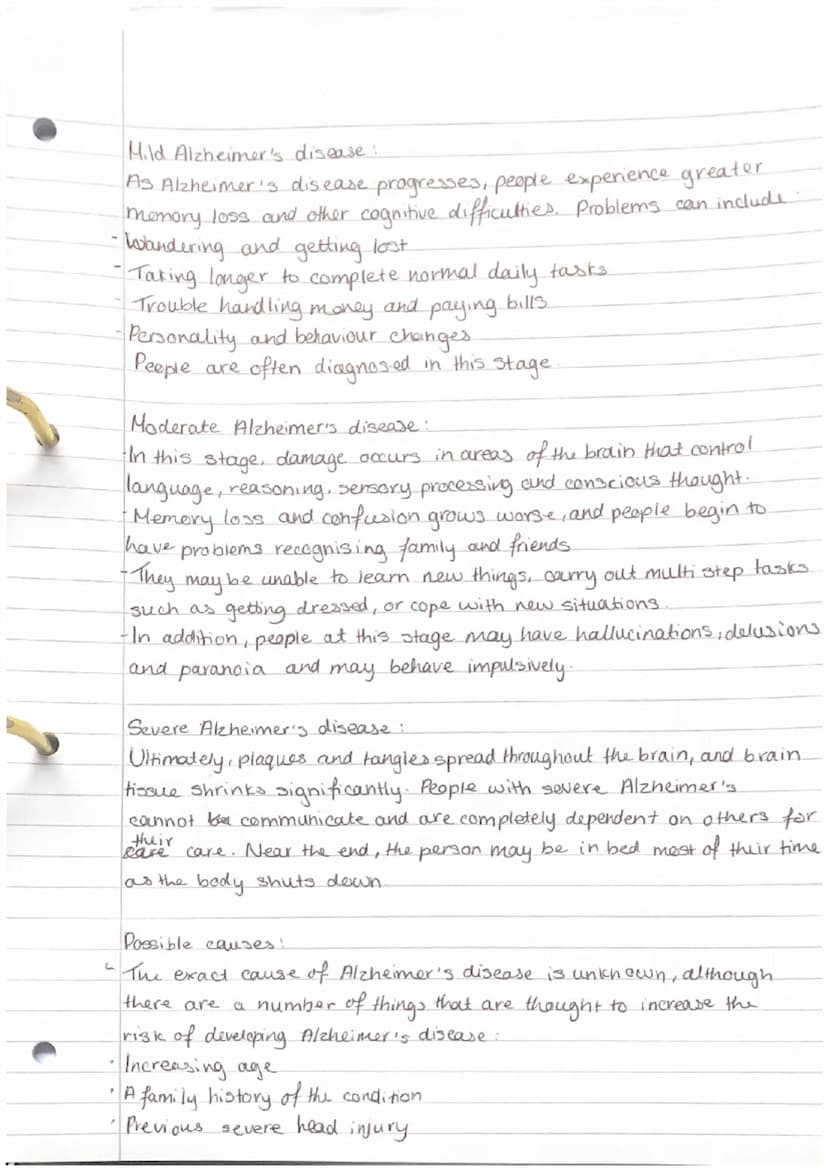 Mild Alzheimer's disease:
As Alzheimer's disease progresses, people experience greater
memory loss and other cognitive difficulties. Problems can include:
- Wandering and getting lost
- Taking longer to complete normal daily tasks
- Trouble handling money and paying bills
- Personality and behaviour changes
People are often diagnosed in this stage.

Moderate Alzheimer's disease:
- In this stage, damage occurs in areas of the brain that control
language, reasoning, sensory processing and conscious thought.
- Memory loss and confusion grows worse, and people begin to
have problems recognising family and friends
- They may be unable to learn new things, carry out multi step tasks
such as getting dressed, or cope with new situations.
- In addition, people at this stage may have hallucinations, delusions
and paranoia and may behave impulsively.

Severe Alzheimer's disease:
Ultimately, plaques and tangles spread throughout the brain, and brain
tissue shrinks significantly. People with severe Alzheimer's
cannot communicate and are completely dependent on others for
their care. Near the end, the person may be in bed most of their time
as the body shuts down.

Possible causes:
The exact cause of Alzheimer's disease is unknown, although
there are a number of things that are thought to increase the
risk of developing Alzheimer's disease:
· Increasing age
· A family history of the condition
· Previous severe head injury